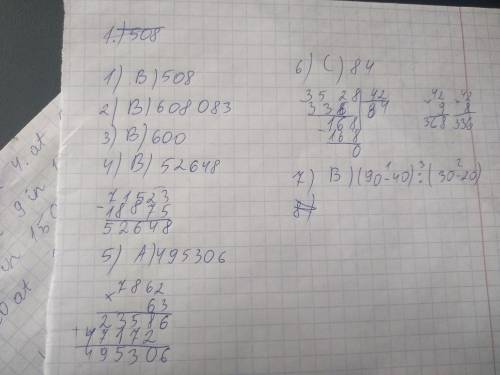 1.) 508
1) B) 508
2) B) 608 083
3) B) 600
4) B) 52648
- 71523
18875
52648
5) A) 495306
× 7862
63
23586
+ 47172
495306
6) C) 84
- 3528 | 42
336 | 84
- 168
168
0
× 42
9
368
× 42
8
336
7) B) (90-40) : (30-20)
1 3 2
8)
4. at
9 in
in 150
20 at